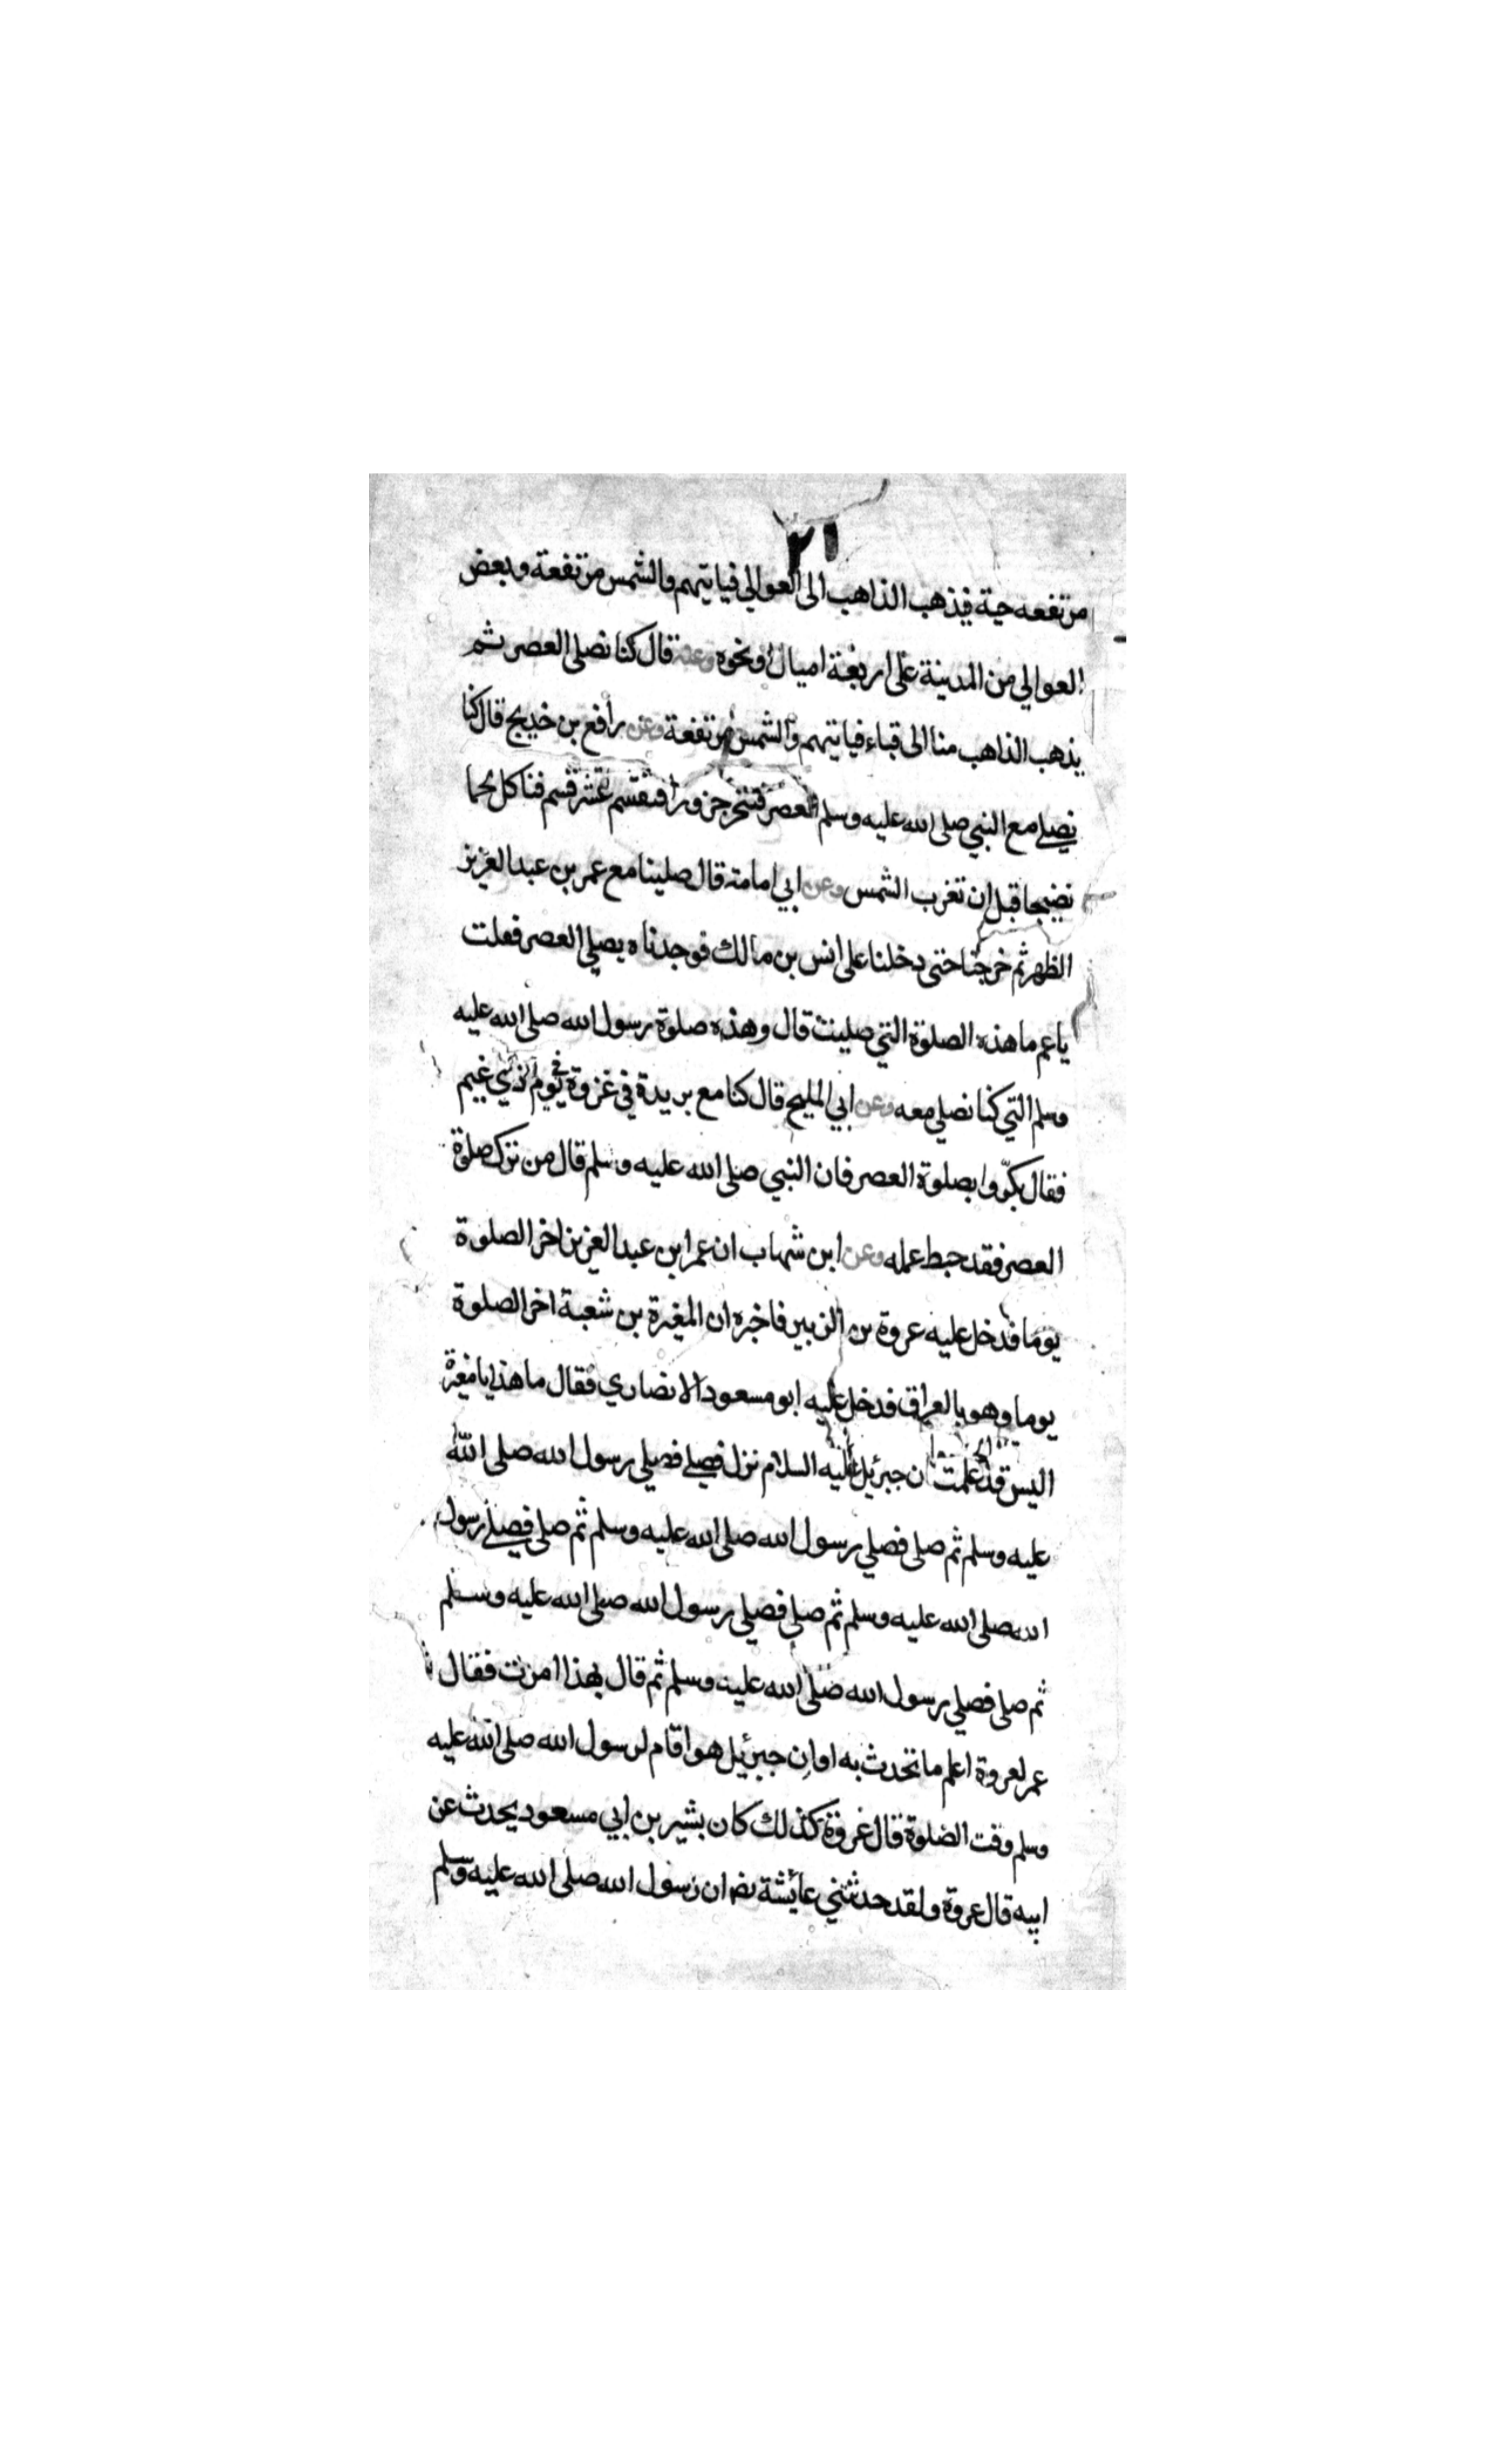 ٢١
مرتفعه حية فيذهب الذاهب الى العوالي فياتيهم والشمس مرتفعة وبعض
العوالي من المدينة على اربعة اميال او نحوه وعنه قال كنا نصلي العصر ثم
يذهب الذاهب منا الى قباء فياتيهم والشمس مرتفعة وعن رافع بن خديج قال كنا
نصلي مع النبي صلى الله عليه وسلم العصر فننحر جزورا فنقسم عشر قسم فناكل لحما
نضيجا قبل ان تغرب الشمس وعن ابي امامة قال صلينا مع عمر بن عبد العزيز
الظهر ثم خرجنا حتى دخلنا على انس بن مالك فوجدناه يصلي العصر فقلت
يا عم ما هذه الصلوة التي صليت قال وهذه صلوة رسول الله صلى الله عليه
وسلم التي كنا نصلي معه وعن ابي المليح قال كنا مع بريدة في غزوة في يوم ذي غيم
فقال بكروا بصلوة العصر فان النبي صلى الله عليه وسلم قال من ترك صلوة
العصر فقد حبط عمله وعن ابن شهاب ان عمر ابن عبد العزيز اخر الصلوة
يوما فدخل عليه عروة بن الزبير فاخبره ان المغيرة بن شعبة اخر الصلوة
يوما وهو بالعراق فدخل عليه ابو مسعود الانصاري فقال ما هذا يا مغيرة
اليس قد علمت ان جبرئيل عليه السلام نزل فصلى فصلي رسول الله صلى الله
عليه وسلم ثم صلى فصلي رسول الله صلى الله عليه وسلم ثم صلى فصلى رسول
الله صلى الله عليه وسلم ثم صلى فصلي رسول الله صلى الله عليه وسلم
ثم صلى فصلي رسول الله صلى الله عليه وسلم ثم قال بهذا امرت فقال
عمر لعروة اعلم ما تحدث به اوان جبرئيل هو اقام لرسول الله صلى الله عليه
وسلم وقت الصلوة قال عروة كذلك كان بشير بن ابي مسعود يحدث عن
ابيه قال عروة ولقد حدثتني عائشة رض ان رسول الله صلى الله عليه وسلم